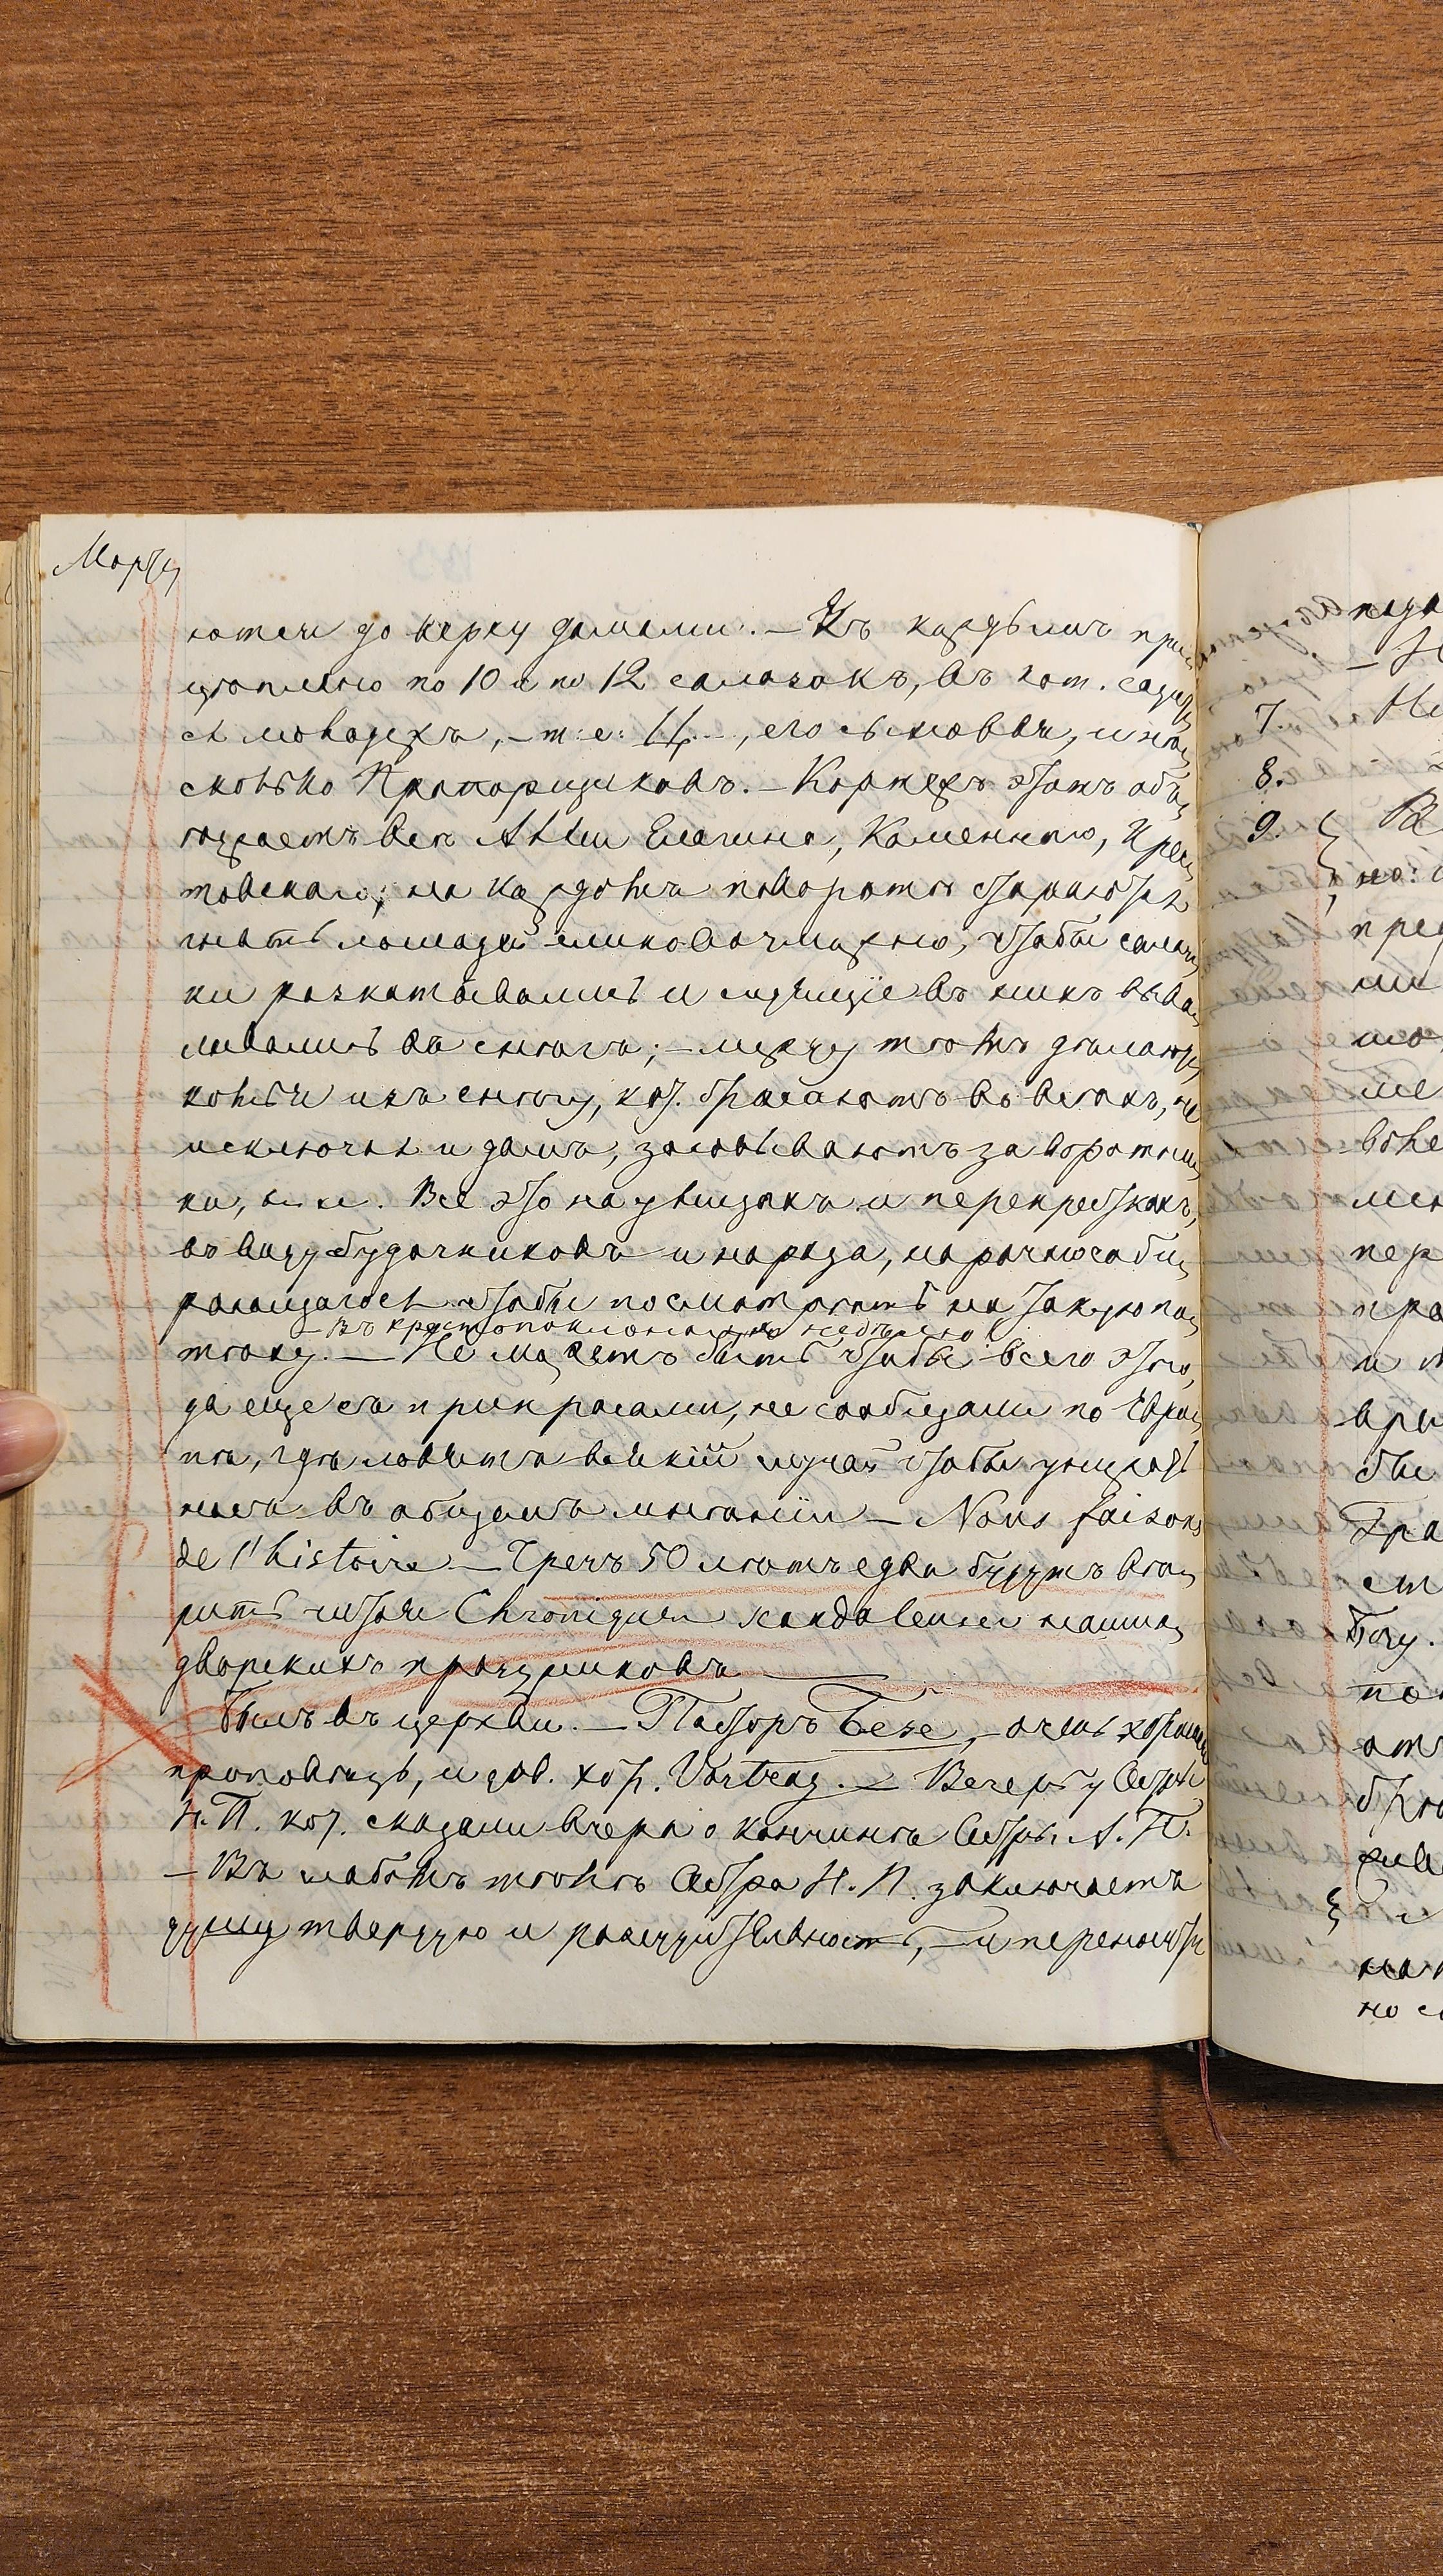 Марта
ются до верху дамами. — Къ каждымъ при-
цѣплено по 10 и по 12 салазокъ, въ кот. садит-
ся молодежь, — т: е: Ц., его сыновья, и нѣ-
сколько Прапорщиковъ. — Кортежъ этотъ объ-
ѣзжаетъ всѣ Аллеи Елагина, Каменнаго, Крес-
товскаго; на каждомъ поворотѣ стараются
гнать лошадей елико возможно, чтобы салаз-
ки раскатывались и сидящіе въ нихъ выва-
ливались въ снѣгъ; — между тѣмъ дѣлаютъ
комья изъ снѣгу, кот. бросаютъ во всѣхъ, не
исключая и дамъ, засовываютъ за воротни-
ки, Все это на улицахъ и перекресткахъ,
въ виду будочниковъ и народа, нарочно соби-
рающагося чтобы посмотрѣть на такую по-
— въ крестопоклонную недѣлю!
тѣху. — Не можетъ быть чтобы всего этого,
да еще съ прикрасами, не сообщали по Евро-
пѣ, гдѣ ловятъ всякій случай чтобы унизить
насъ въ общемъ мнѣніи — Nous faisons
de l'histoire — Чрезъ 50 лѣтъ едва будутъ вѣ-
рить этой Chronique scandaleuse нашихъ
дворскихъ праздниковъ —
Былъ въ церкви. — Пасторъ Безе, — очень хорошая
проповѣдь, и дов. хор. Vortrag. — Вечеръ у Сестры
Н. П. кот. сказали вчера о кончинѣ Сестры А. П.
— Въ слабомъ тѣлѣ Сестра Н. П. заключаетъ
душу твердую и разсудительность, — и переноситъ
7.
8.
9.
пред
пер